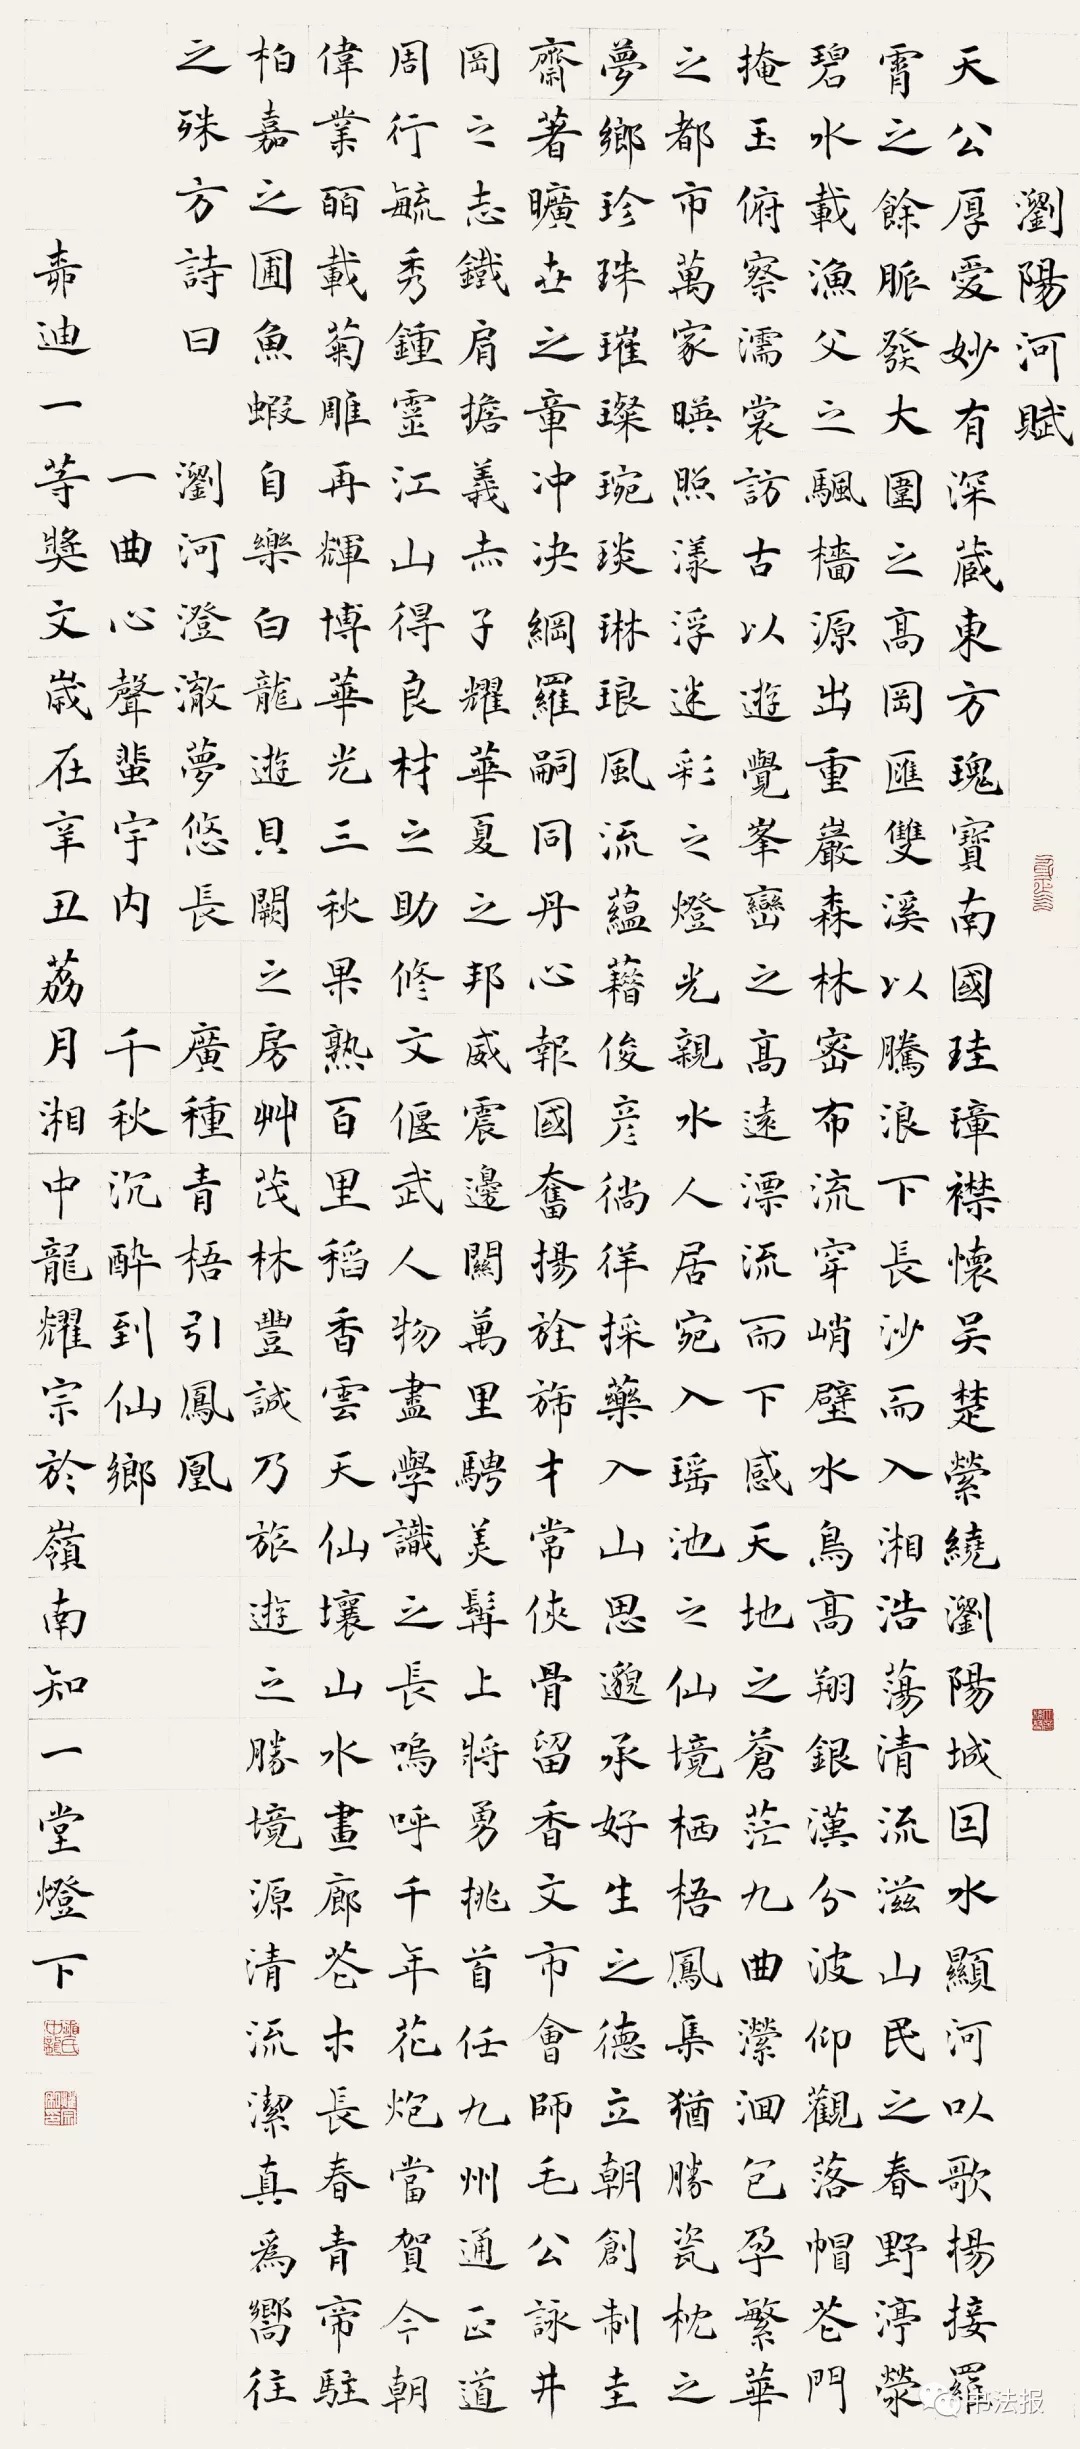 瀏陽河賦
天公厚愛妙有深蔵東方瑰寶南國珪璋襟懷吴楚縈繞瀏陽城因水顯河以歌揚接羅
霄之餘脈發大圍之髙岡匯雙溪以騰浪下長沙而入湘浩蕩清流滋山民之春野渟滎
碧水載漁父之颿檣源出重巖森林密布流穿峭壁水鳥髙翔銀漢分波仰觀落帽芲門
掩玉俯察濡裳訪古以遊覺峯巒之髙遠漂流而下感天地之蒼茫九曲瀠洄包孕繁華
之都市萬家暎照漾浮迷彩之燈光親水人居宛入瑶池之仙境栖梧鳳集猶勝瓷枕之
夢鄉珍珠璀璨琬琰琳琅風流蘊藉俊彦徜徉採藥入山思邈承好生之德立朝創制圭
齋著曠世之章冲决綱羅嗣同丹心報國奮揚旌斾才常俠骨留香文市會師毛公詠井
岡之志鐵肩擔義志子耀華夏之邦威震邊關萬里騁美髯上將勇挑首任九州通正道
周行毓秀鍾靈江山得良材之助修文偃武人物盡學識之長嗚呼千年花炮當賀今朝
偉業皕載菊雕再輝博華光三秋果熟百里稻香雲天仙壤山水畫廊芲木長春青帝駐
柏嘉之圃魚蝦自樂白龍遊貝闕之房艸茂林豐誠乃旅遊之勝境源清流潔真爲嚮往
之殊方詩曰 瀏河澄澈夢悠長 廣種青梧引鳳凰
一曲心聲蜚宇内 千秋沉酔到仙鄉
茆迪一等獎文歳在辛丑荔月湘中龍耀宗於嶺南知一堂燈下
书法报